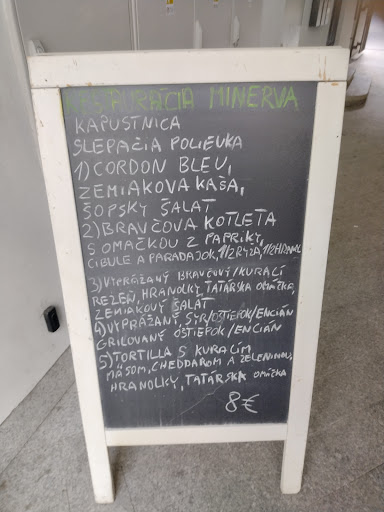 REŠTAURÁCIA MINERVA
KAPUSTNICA
SLEPAČIA POLIEVKA
1) CORDON BLEU,
ZEMIAKOVÁ KAŠA,
ŠOPSKÝ ŠALÁT
2) BRAVČOVÁ KOTLETA
S OMÁČKOU Z PAPRIKY,
CIBULE A PARADAJOK, 1/2 RYŽA, 1/2 HRANOL
3) VYPRÁŽANÝ BRAVČOVÝ/KURACÍ
REZEŇ, HRANOLKY, TATÁRSKA OMÁČKA,
ZEMIAKOVÝ ŠALÁT
4) VYPRÁŽANÝ SYR/OŠTIEPOK/ENCIÁN
GRILOVANÝ OŠTIEPOK/ENCIÁN
5) TORTILLA S KURACÍM
MÄSOM, CHEDDAROM A ZELENINOU,
HRANOLKY, TATÁRSKA OMÁČKA
8€